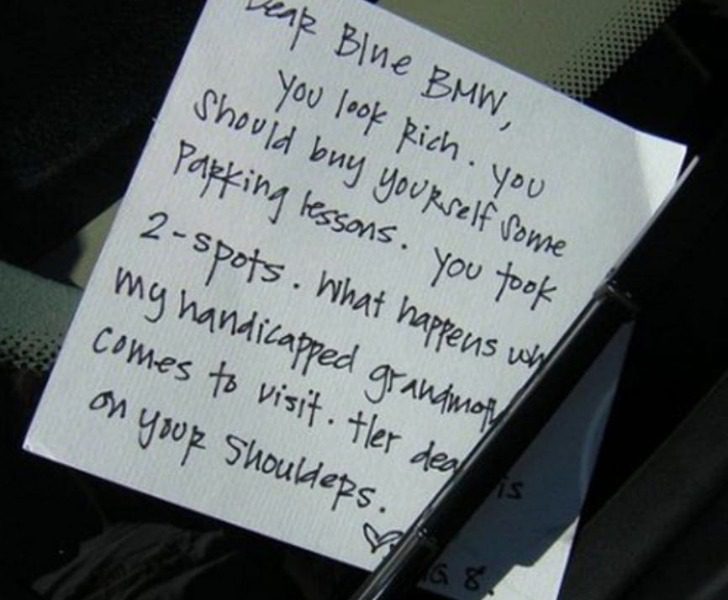 Dear Blue BMW,
You look Rich. You
Should buy yourself Some
Parking lessons. You took
2-spots. What happens
my handicapped
comes to visit. Her
is
on your shoulders.
8.